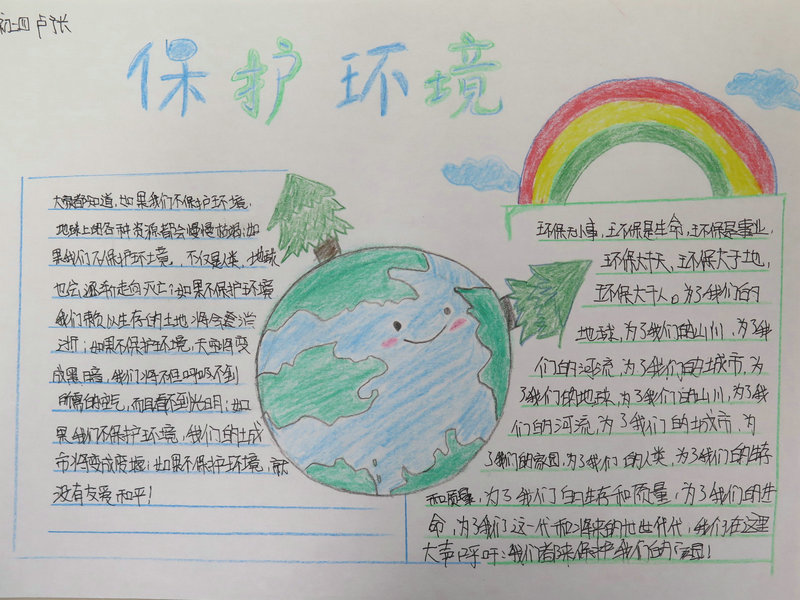 初二四 卢张
保护环境
大家都知道,如果我们不保护环境,
地球上的各种资源都会慢慢枯竭;如
果我们不保护环境,不仅是人类,地球
也会逐渐走向灭亡;如果不保护环境
我们赖以生存的土地将会逐渐
逝;如果不保护环境,天空将变
成黑暗,我们将不但呼吸不到
所需的空气,而且看不到光明;如
果我们不保护环境,我们的城
市将变成废墟;如果不保护环境,就
没有友爱和平!
环保无小事,环保是生命,环保是事业,
环保大于天、环保大于地,
环保大于人。为了我们的
地球,为了我们的山川,为了我
们的河流,为了我们的城市,为
了我们的地球,为了我们的山川,为了我
们的河流,为了我们的城市,为
了我们的家园,为了我们的人类,为了我们的生存
和质量,为了我们的生存和质量,为了我们的生
命,为了我们这一代和将来的世世代代,我们在这里
大声呼吁:我们都来保护我们的家园!